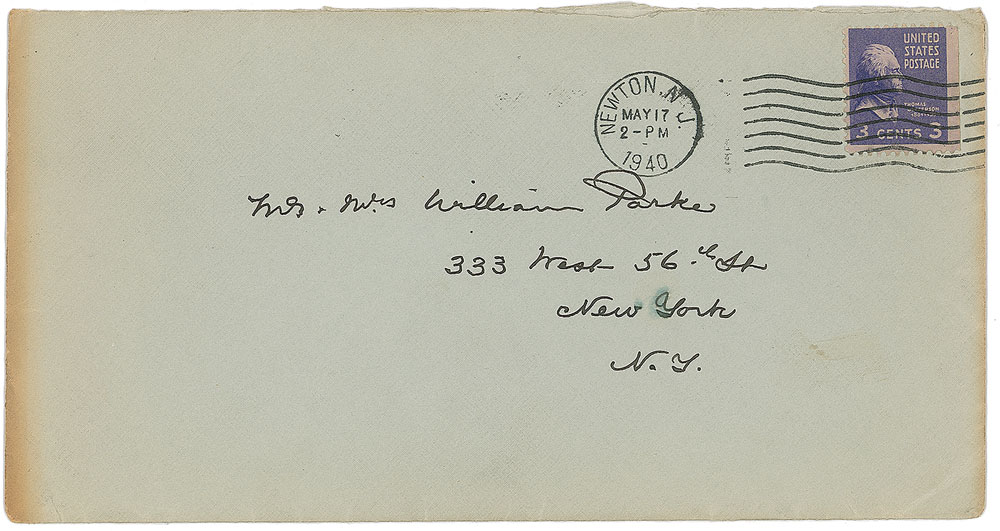 UNITED
STATES
POSTAGE
THOMAS
JEFFERSON
3 CENTS 3
NEWTON, N.J.
MAY 17
2-PM
1940
Mr. Mrs William Parke
333 West 56th St
New York
N.Y.